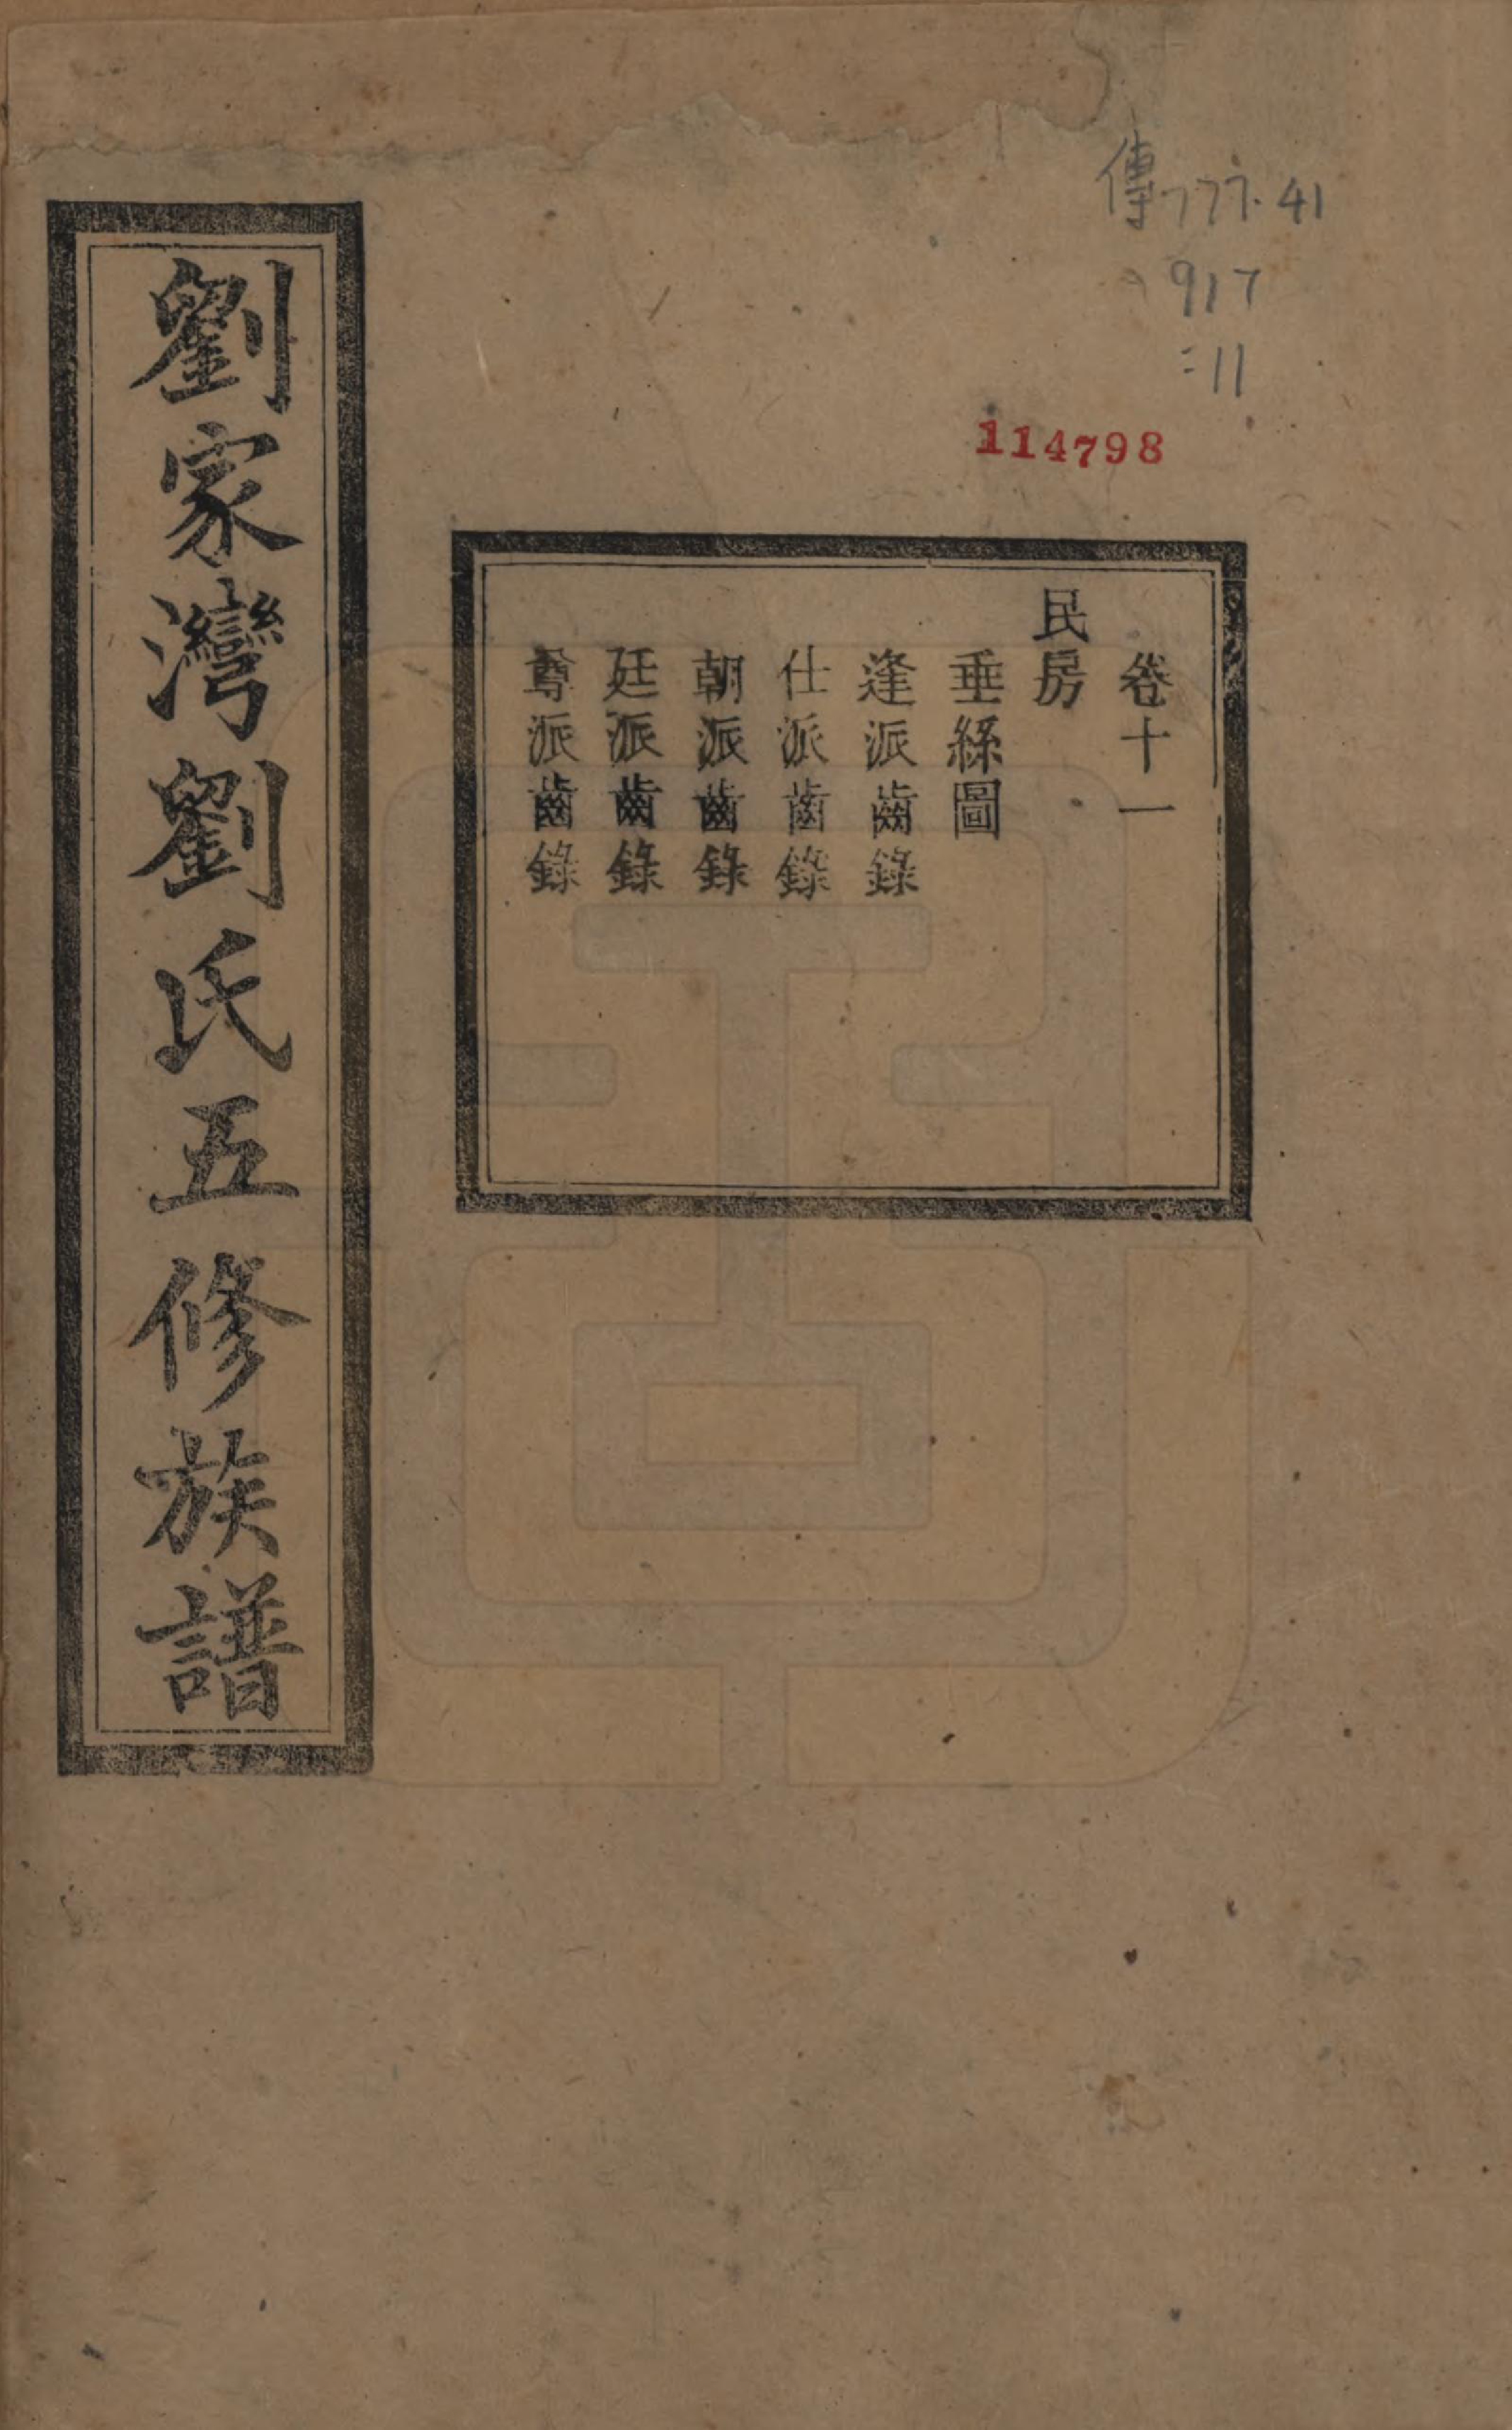 傳777.41
917
:11
114798
卷十一
民房
垂絲圖
逢派齒錄
仕派齒錄
朝派齒錄
廷派齒錄
尊派齒錄
劉家灣劉氏五修族譜